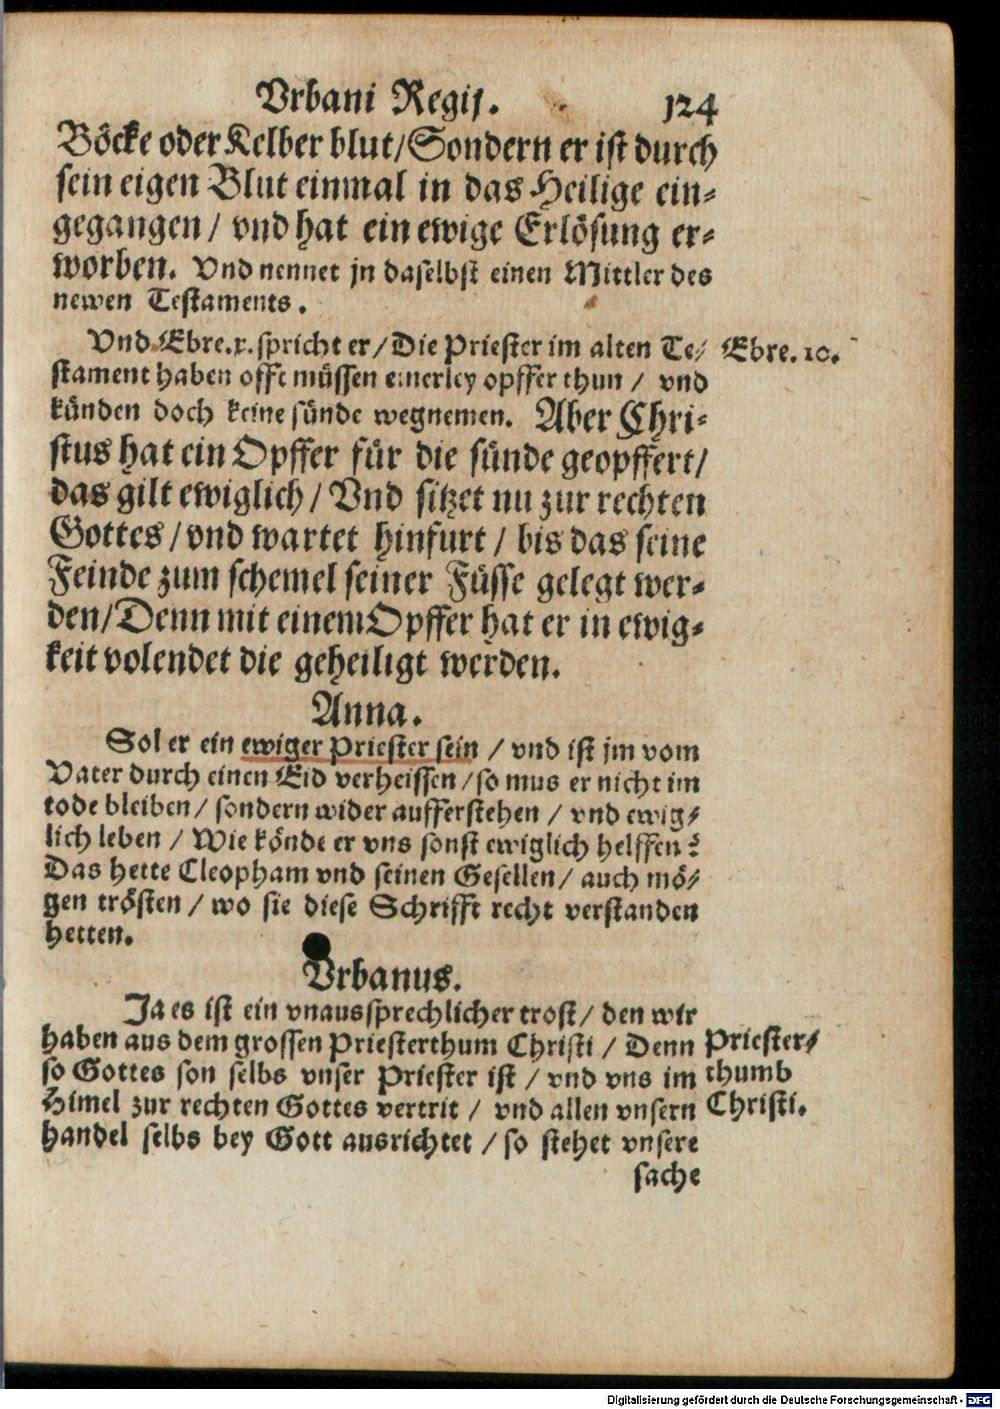 Vrbani Regij. 124
Böcke oder Kelber blut/Sondern er ist durch
sein eigen Blut einmal in das Heilige ein-
gegangen/ vnd hat ein ewige Erlösung er-
worben. Vnd nennet jn daselbst einen Mittler des
newen Testaments.
Vnd Ebre.x. spricht er/Die Priester im alten Te- Ebre. 10.
stament haben offt müssen einerley opffer thun/ vnd
künden doch keine sünde wegnemen. Aber Chri-
stus hat ein Opffer für die sünde geopffert/
das gilt ewiglich/ Vnd sitzet nu zur rechten
Gottes/vnd wartet hinfurt/ bis das seine
Feinde zum schemel seiner Füsse gelegt wer-
den/Denn mit einem Opffer hat er in ewig-
keit volendet die geheiligt werden.
Anna.
Sol er ein ewiger Priester sein / vnd ist jm vom
Vater durch einen Eid verheissen/so mus er nicht im
tode bleiben/ sondern wider aufferstehen / vnd ewig-
lich leben / Wie könde er vns sonst ewiglich helffen?
Das hette Cleopham vnd seinen Gesellen/ auch mö-
gen trösten/ wo sie diese Schrifft recht verstanden
hetten.
Vrbanus.
Ja es ist ein vnaussprechlicher trost/ den wir
haben aus dem grossen Priesterthum Christi / Denn Priester-
so Gottes son selbs vnser Priester ist / vnd vns im thumb
Himel zur rechten Gottes vertrit / vnd allen vnsern Christi.
handel selbs bey Gott ausrichtet / so stehet vnsere
sache
Digitalisierung gefördert durch die Deutsche Forschungsgemeinschaft - DFG